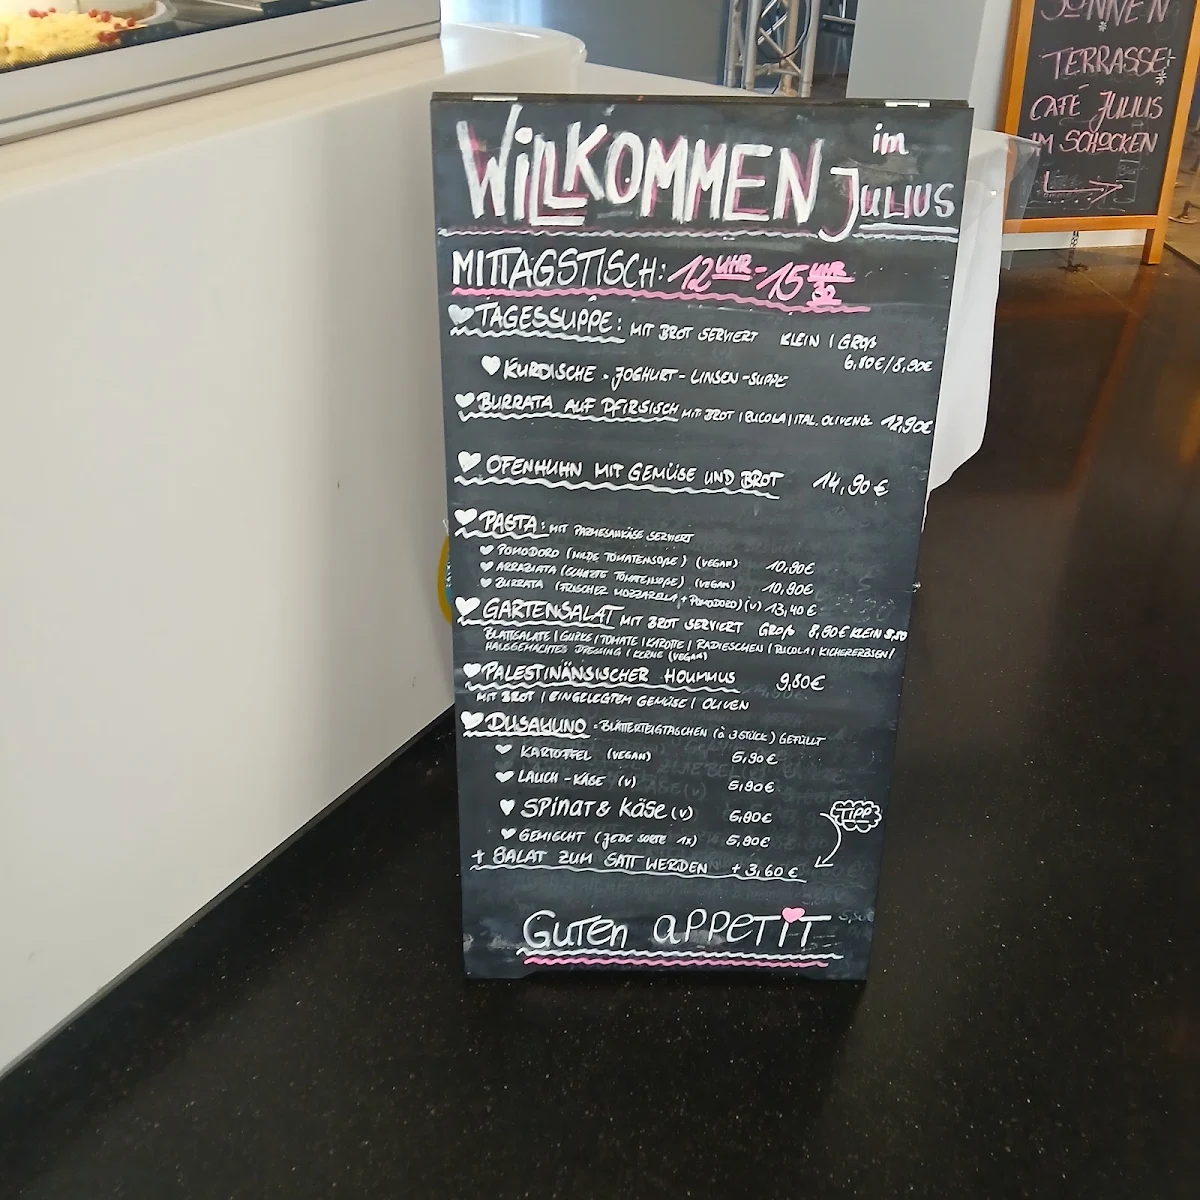 WILLKOMMEN im
JULIUS
MITTAGSTISCH: 12 UHR - 15 UHR 30
TAGESSUPPE: MIT BROT SERVIERT KLEIN | GROß
6,80€/8,90€
KURDISCHE - JOGHURT - LINSEN - SUPPE
BURRATA AUF PFIRSICH MIT BROT | RUCOLA | ITAL. OLIVENÖL 12,90€
OFENHUHN MIT GEMÜSE UND BROT 14,90€
PASTA: MIT PARMESANKÄSE SERVIERT
POMODORO (MILDE TOMATENSOßE) (VEGAN) 10,90€
ARRABIATA (SCHARFE TOMATENSOßE) (VEGAN) 10,90€
BURRATA (FRISCHER MOZZARELLA + POMODORO) (V) 13,40€
GARTENSALAT MIT BROT SERVIERT GROß 8,90€ KLEIN
BLATTSALATE | GURKE | TOMATE | KAROTTE | RADIESCHEN | RUCOLA | KICHERERBSEN /
HAUSGEMACHTES DRESSING | KERNE (VEGAN)
PALESTINÄNSISCHER HOUMMUS 9,80€
MIT BROT | EINGELEGTEM GEMÜSE | OLIVEN
- BLÄTTERTEIGTASCHEN (à 3 STÜCK) GEFÜLLT
KARTOFFEL (VEGAN) 5,90€
LAUCH - KÄSE (V) 5,90€
SPINAT & KÄSE (V) 5,90€
TIPP
GEMISCHT (JEDE SORTE 1x) 5,90€
+ SALAT ZUM SATT WERDEN + 3,60€
GUTEN APPETIT
SONNEN
TERRASSE
CAFÉ JULIUS
IM SCHOCKEN